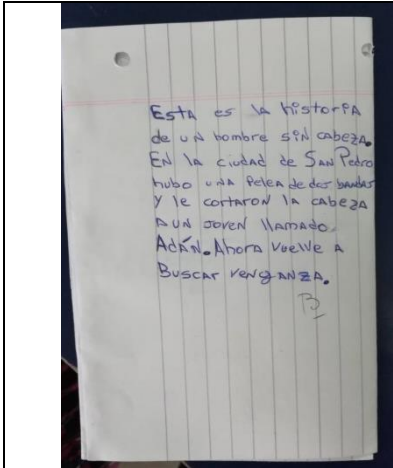 Esta es la historia
de un hombre sin cabeza.
En la ciudad de San Pedro
hubo una pelea de dos bandas
y le cortaron la cabeza
a un joven llamado
Adán. Ahora vuelve a
Buscar venganza.
B